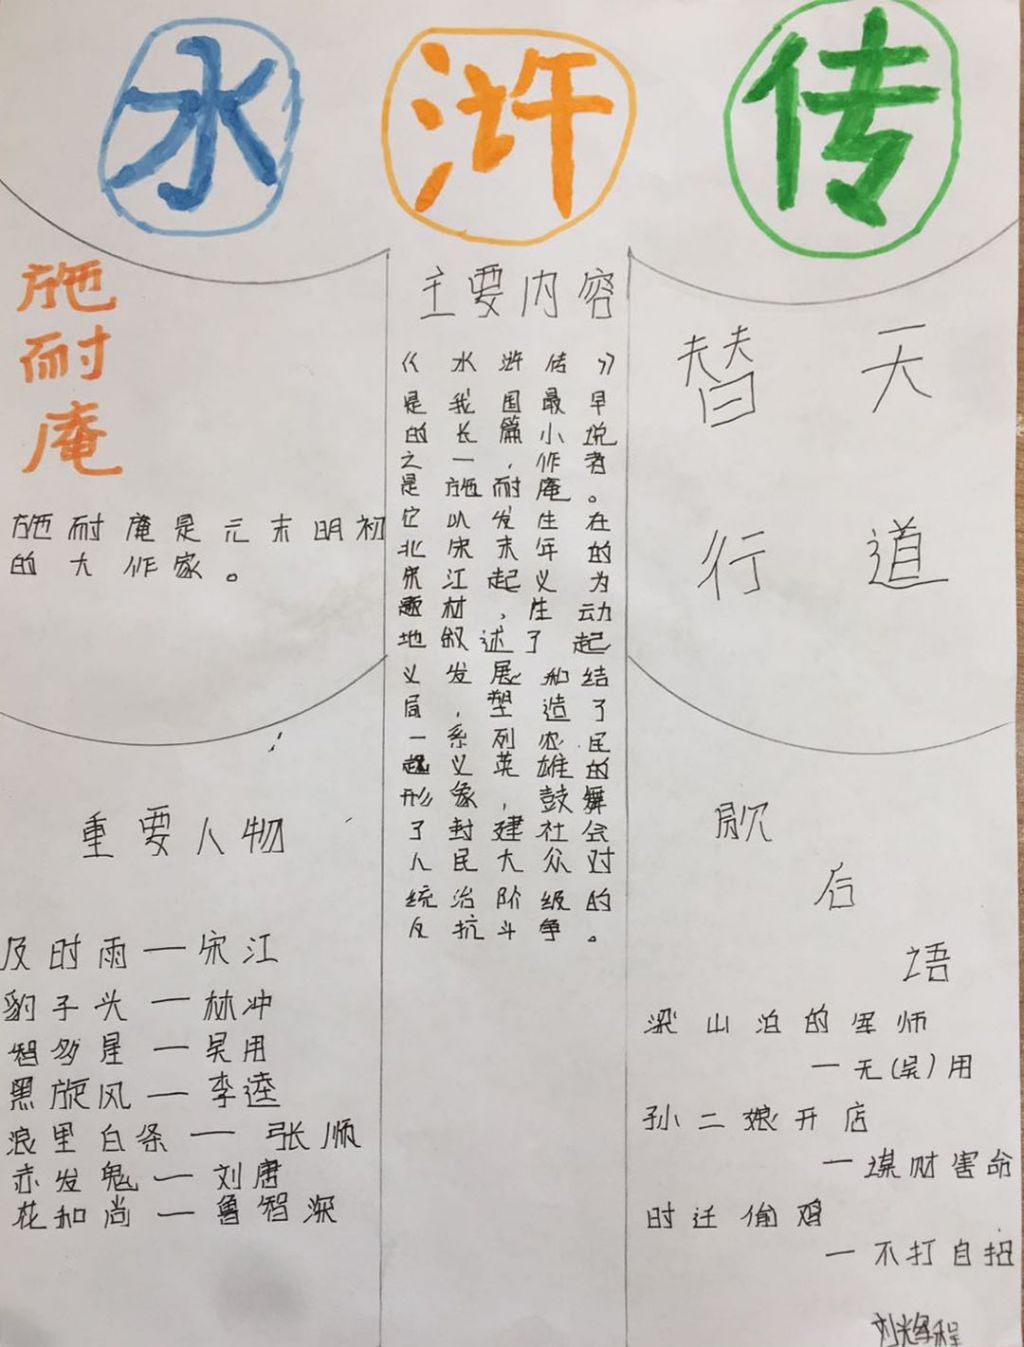 水 浒 传
施
耐
庵
施耐庵是元末明初
的大作家。
主要内容
《水浒传》
是我国最早
的长篇小说
之一，作者
是施耐庵。
它以发生在
北宋末年的
宋江起义为
题材，生动
地叙述了起
义发展和结
局，塑造了
一系列农民
起义英雄的
形象，鼓舞
了封建社会
人民大众对
统治阶级的
反抗斗争。
替 天
行 道
重要人物
及时雨—宋江
豹子头—林冲
智多星—吴用
黑旋风—李逵
浪里白条—张顺
赤发鬼—刘唐
花和尚—鲁智深
歇
后
语
梁山泊的军师
—无(吴)用
孙二娘开店
—谋财害命
时迁偷鸡
—不打自招
刘辉程